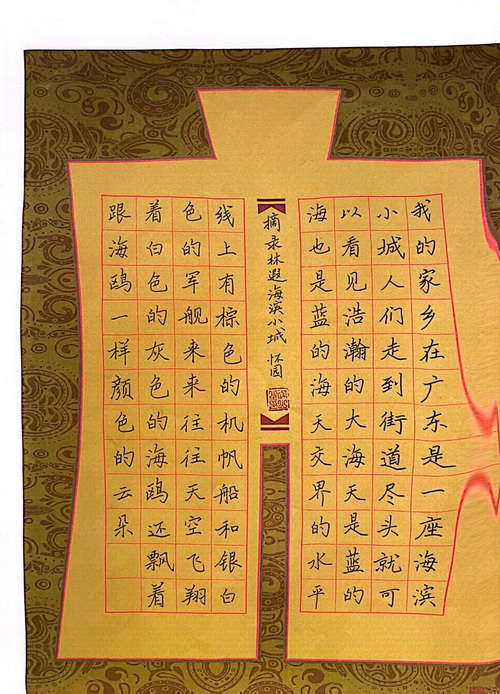 我的家乡在广东是一座海滨
小城人们走到街道尽头就可
以看见浩瀚的大海天是蓝的
海也是蓝的海天交界的水平
摘录林遐海滨小城 怀园
线上有棕色的机帆船和银白
色的军舰来来往往天空飞翔
着白色的灰色的海鸥还飘着
跟海鸥一样颜色的云朵